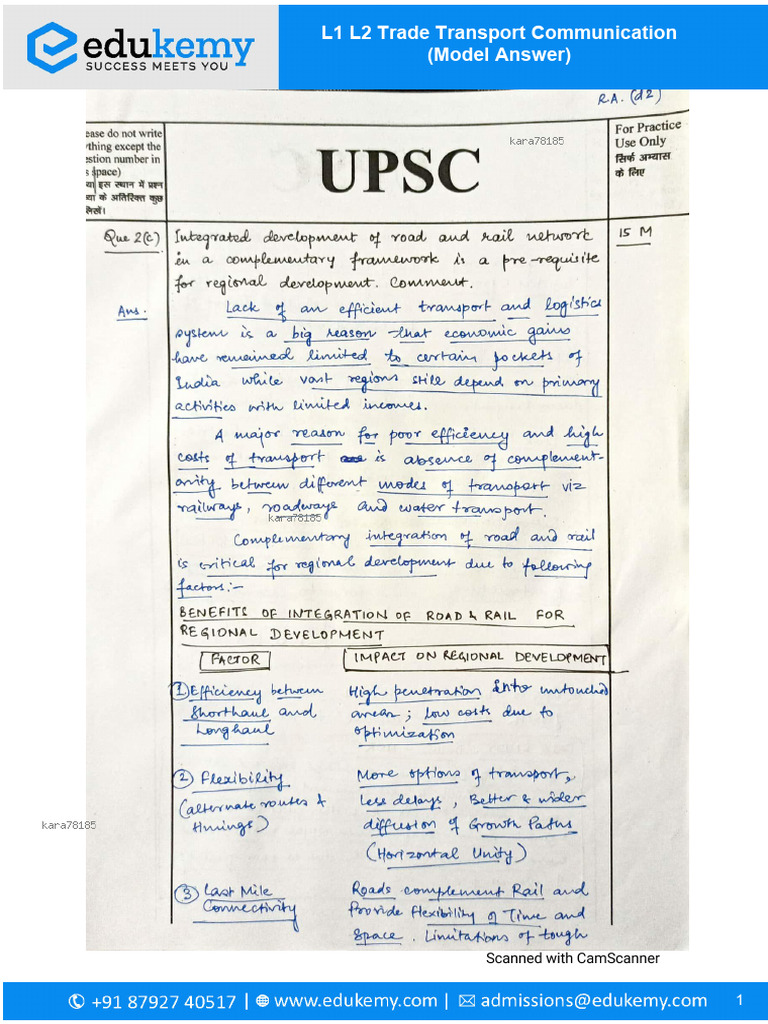 edukemy
SUCCESS MEETS YOU
L1 L2 Trade Transport Communication
(Model Answer)
R.A. (d2)
ease do not write
ything except the
estion number in
s space)
या इस स्थान में प्रश्न
या के अतिरिक्त कुछ
लिखें।
UPSC
kara78185
For Practice
Use Only
सिर्फ अभ्यास
के लिए
Que 2(c)
Integrated development of road and rail network
in a complementary framework is a pre-requisite
for regional development. Comment.
15 M
Ans.
Lack of an efficient transport and logistics
system is a big reason that economic gains
have remained limited to certain pockets of
India while vast regions still depend on primary
activities with limited incomes.
A major reason for poor efficiency and high
costs of transport is absence of complement-
arity between different modes of transport viz
railways, roadways and water transport.
kara78185
Complementary integration of road and rail
is critical for regional development due to following
factors:-
BENEFITS OF INTEGRATION OF ROAD & RAIL FOR
REGIONAL DEVELOPMENT
FACTOR
IMPACT ON REGIONAL DEVELOPMENT
① Efficiency between
Shorthaul and
Longhaul
High penetration into untouched
areas; low costs due to
optimization
② Flexibility
(alternate routes &
timings)
More options of transport,
less delays, Better & wider
diffusion of Growth Paths
(Horizontal Unity)
kara78185
③ Last Mile
Connectivity
Roads complement Rail and
Provide Flexibility of Time and
Space. Limitations of tough
Scanned with CamScanner
+91 87927 40517 | www.edukemy.com | admissions@edukemy.com 1